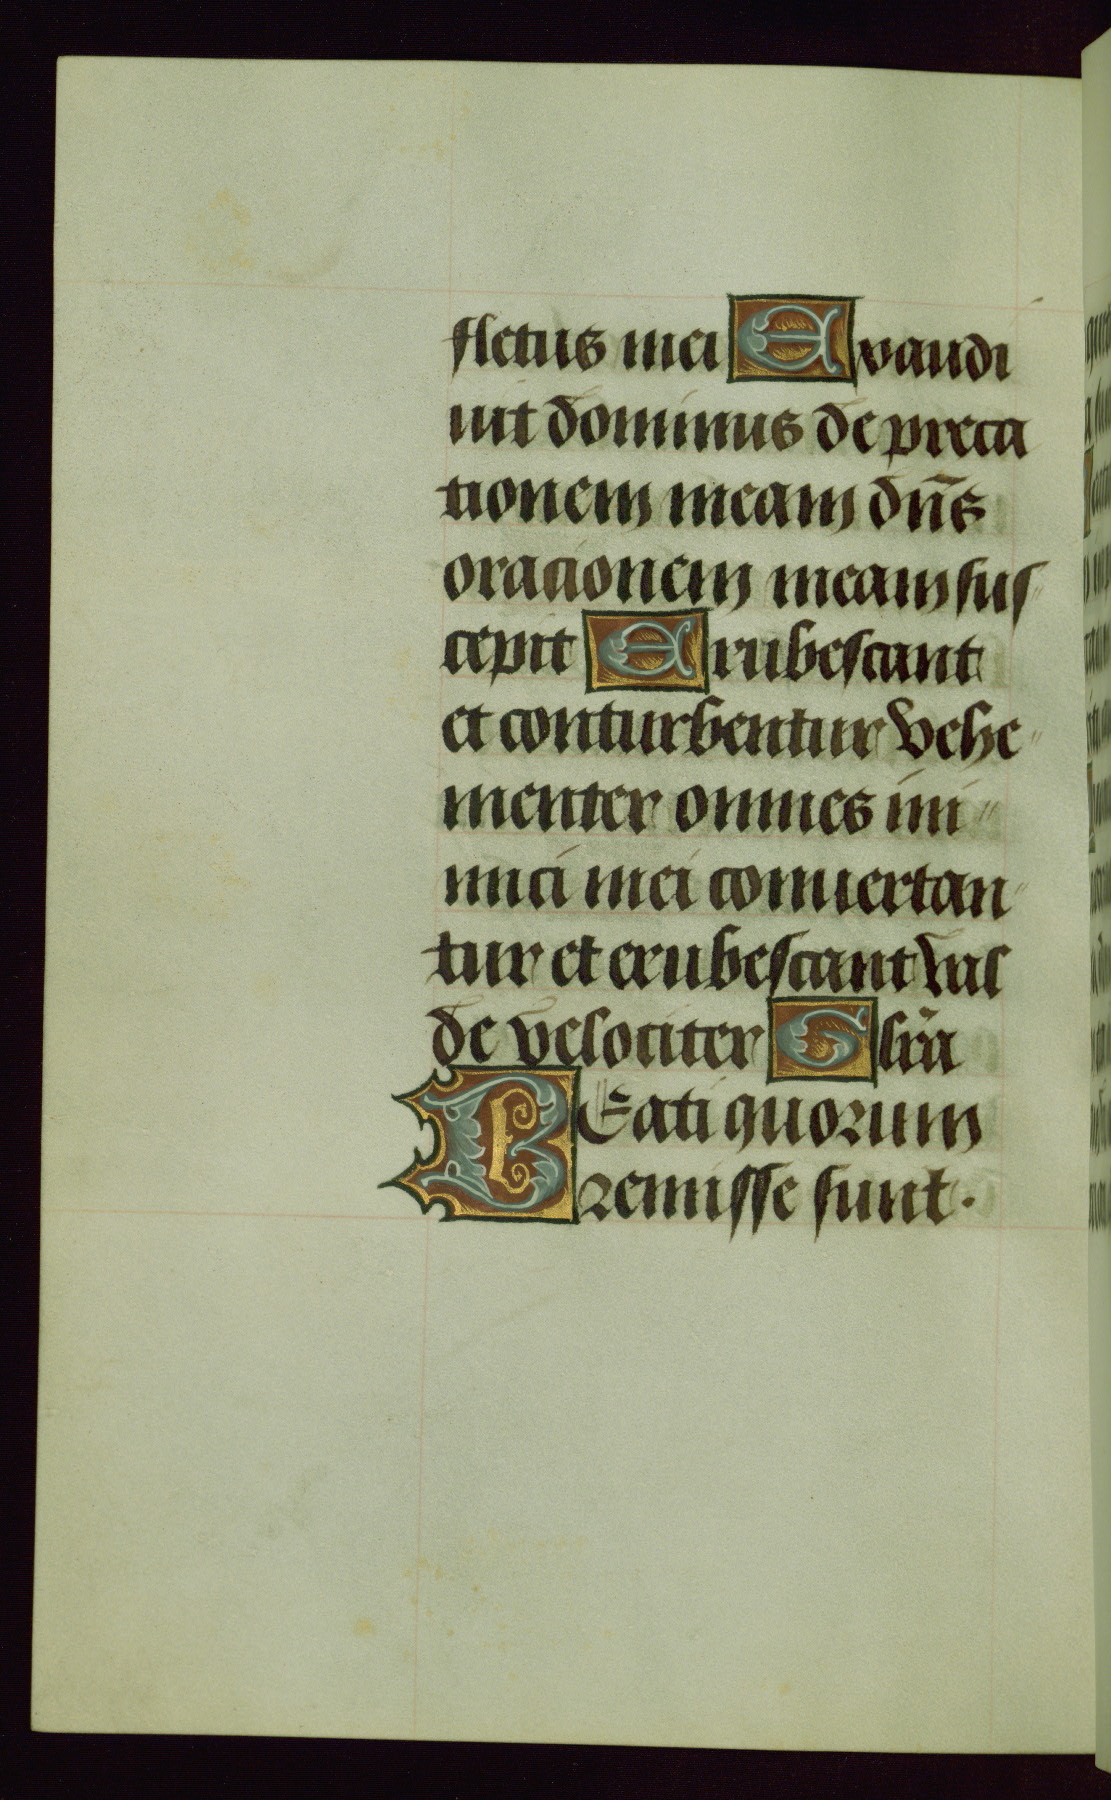 fletus mei Exaudi
uit dominus depreca
tionem meam dn̄s
oracionem meam sus
cepit Erubescant
et conturbentur vehe
menter omnes ini
mici mei conuertan
tur et erubescant val
de velociter Glr̄ia
BEati quorum
remisse sunt.